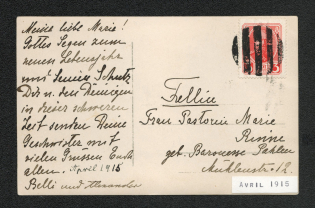 Meine liebe Marie!
Gottes Segen zum
neuen Lebensjahr
und Seinen Schutz
Dir u. den Deinigen
in dieser schweren
Zeit senden Deine
Geschwister mit
vielen Grüssen Euch
allen. April 1915
Belli und Alexander
Fellin
Frau Pastorin Marie
geb. Baronesse Pahlen
Mühlenstr. 12
AVRIL 1915